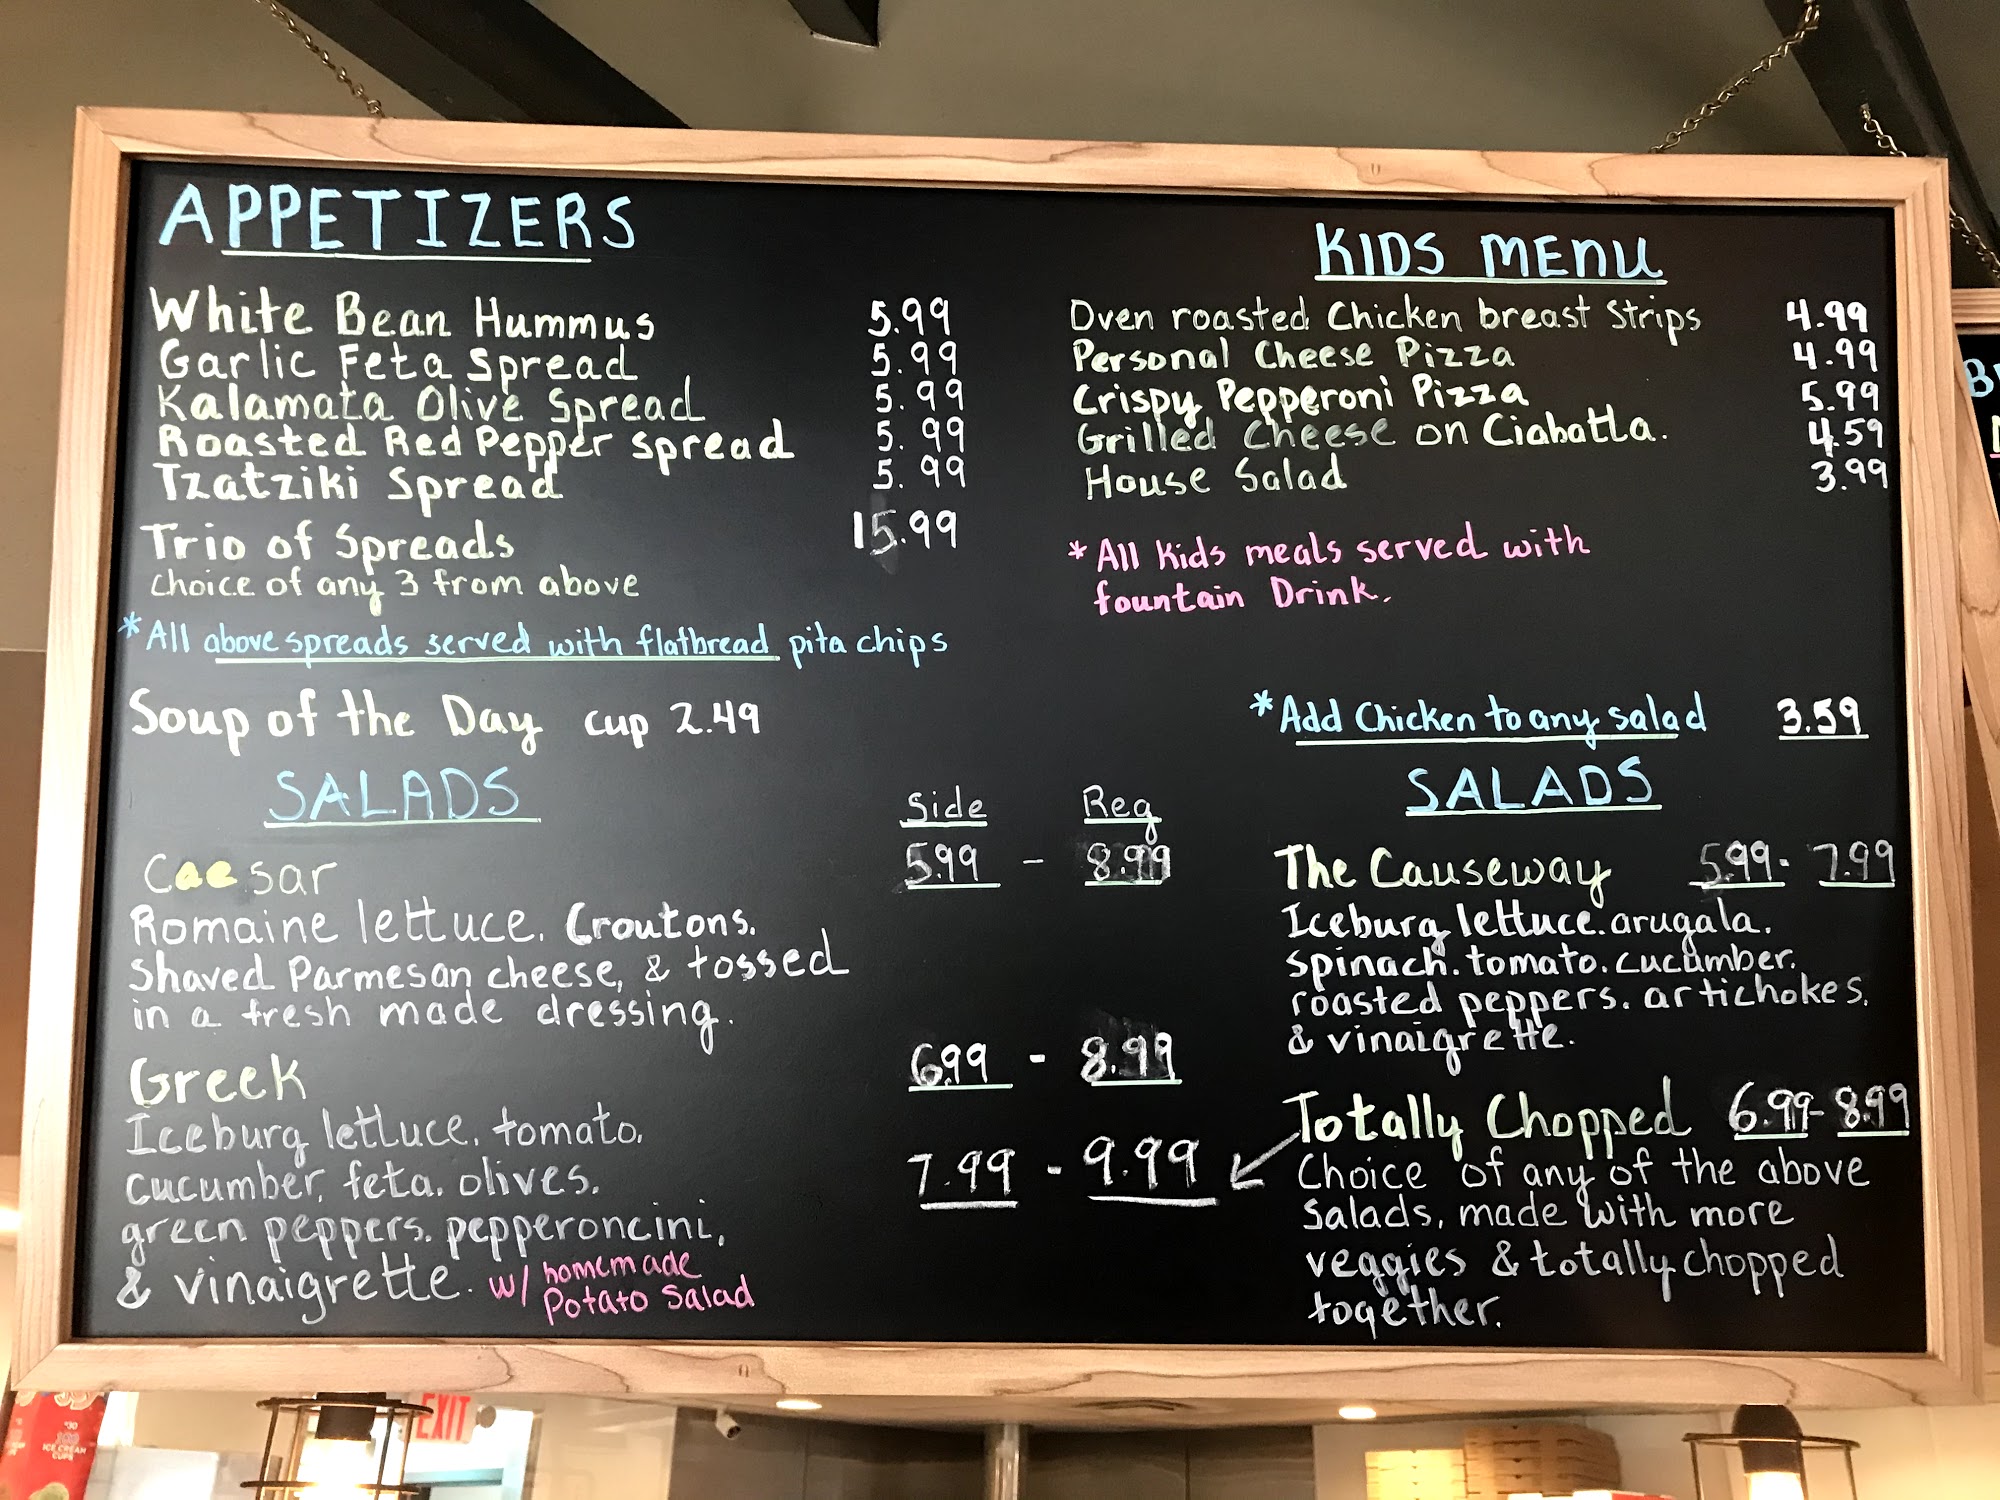 APPETIZERS
White Bean Hummus 5.99
Garlic Feta Spread 5.99
Kalamata Olive Spread 5.99
Roasted Red Pepper spread 5.99
Tzatziki Spread 5.99
Trio of Spreads 15.99
choice of any 3 from above
*All above spreads served with flatbread pita chips
Soup of the Day cup 2.49
SALADS
Side Reg
Caesar 5.99 - 8.99
Romaine lettuce. Croutons.
Shaved Parmesan cheese, & tossed
in a fresh made dressing.
Greek 6.99 - 8.99
Iceburg lettuce. tomato.
cucumber. feta. olives.
green peppers. pepperoncini,
& vinaigrette. w/ homemade
Potato Salad
7.99 - 9.99
KIDS MENU
Oven roasted Chicken breast Strips 4.99
Personal Cheese Pizza 4.99
Crispy Pepperoni Pizza 5.99
Grilled Cheese on Ciabatta. 4.59
House Salad 3.99
*All Kids meals served with
fountain Drink.
*Add Chicken to any salad 3.59
SALADS
The Causeway 5.99 - 7.99
Iceburg lettuce. arugala.
spinach. tomato. cucumber.
roasted peppers. artichokes.
& vinaigrette.
Totally Chopped 6.99 - 8.99
Choice of any of the above
Salads, made with more
veggies & totally chopped
together.
EXIT
ICE CREAM
CUPS